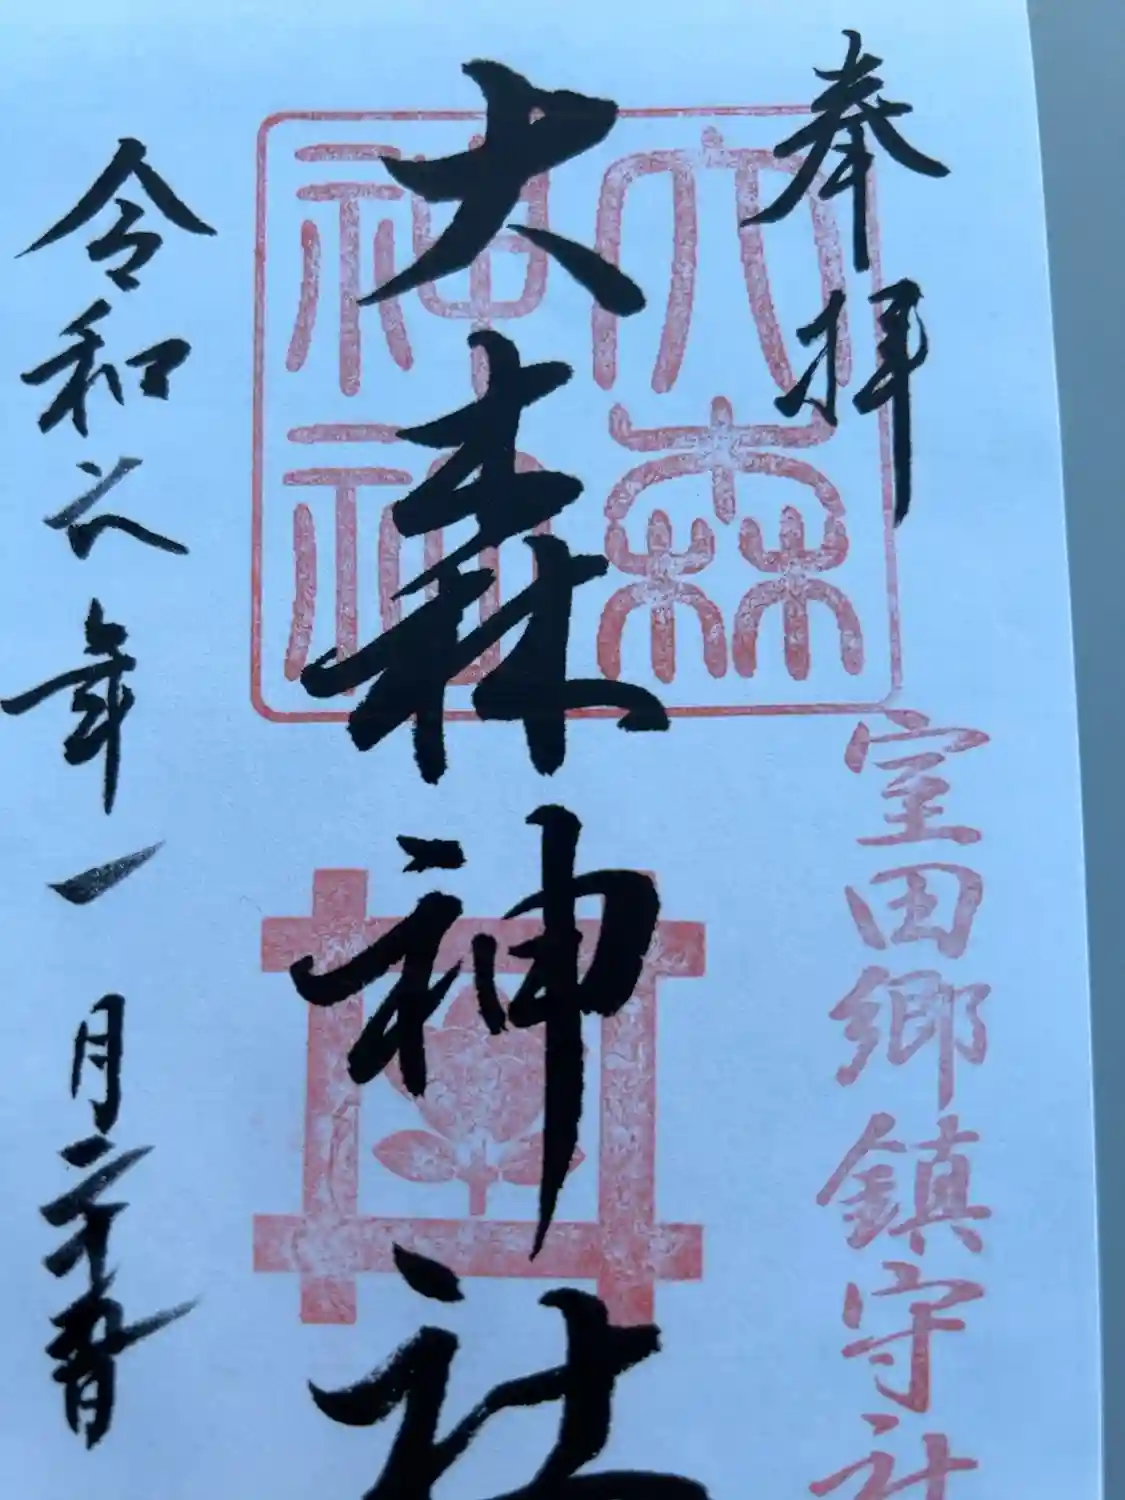 奉拝
室田郷鎮守社
大森神社
大森神社
令和六年一月二十九日